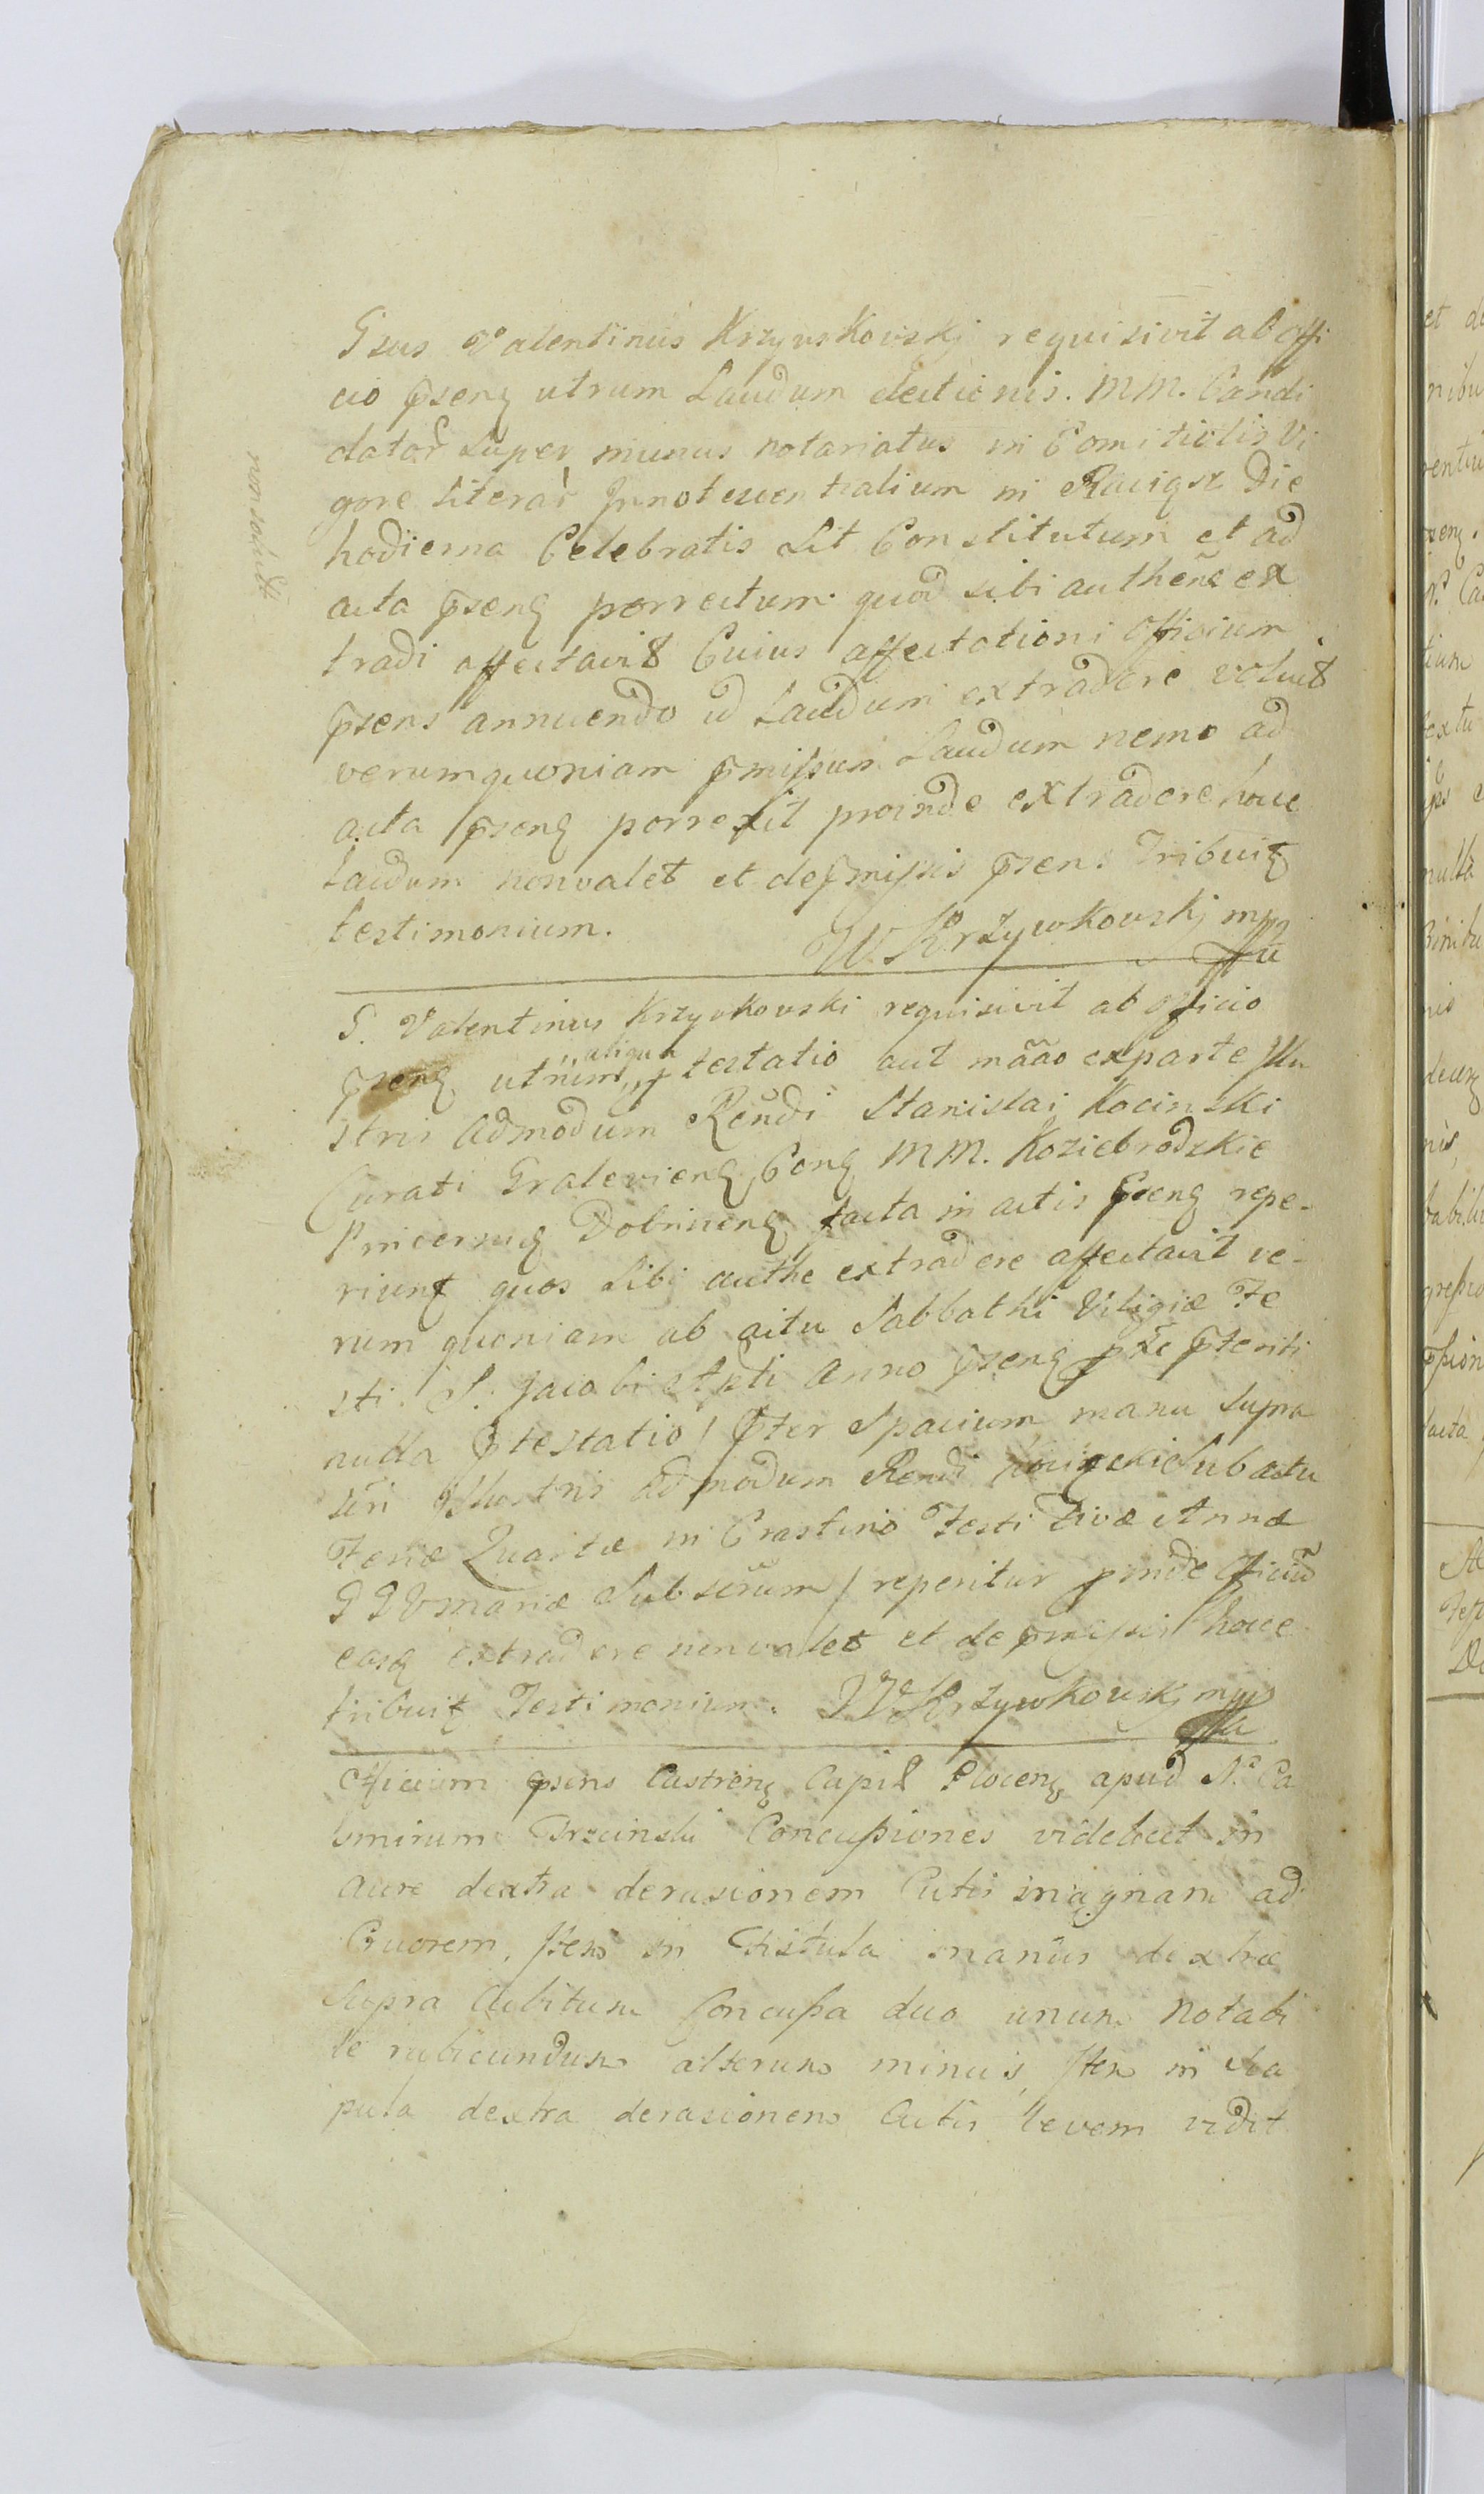 Gsus Valentinus Krzywkowskj requisivit ab offi
cio p̃senꝫ utrum Laudum electionis. MM. Candi
dator̃ super munus notariatus in Comitiolis Vi
gore literar̃ Innotescentialium in Raciąsz Die
hodierna Celebratis sit Constitutum et ad
acta p̃senꝫ porrectum quod sibi authen̄e ex
tradi affectavit Cuius affectationi Officium
p̃sens annuendo id Laudum extradere voluit
verum quoniam p̃missum Laudum nemo ad
acta p̃senꝫ porrexit proinde extradere hocce
Laudum non valet et de p̃missis p̃sens Tribuit
testimonium.
W. Krzywkowskj mpp
non solvit
G. Valentinus Krzywkowski requisivit ab officio
p̃senꝫ utrum aliqua p̃testatio aut mããо ex parte Illu
stris Admodum Rēndi Stanislai Kocinski
Curati Gralevienꝫ Conꝫ MM. Koziebrodzkie
Pincernuꝫ Dobrinenꝫ facta in actis p̃senꝫ repe-
riunt quos sibi authe extradere affectavit ve-
rum quoniam ab actu Sabbathi Vilgiæ Fe
sti. S. Jacobi Apti Anno p̃senꝫ p̃xe p̃teriti
nulla p̃testatio / p̃ter Spacium manu supra
scri Illustris Admodum Rendi Kocinski Sub actu
Feriæ Quartæ in Crastino Festi Divæ Annæ
G G V mariæ Subscr̃um / reperitur proinde Officiū
easq extradere non valet et de p̃missis hocce
tribuit Testimonium. W Krzywkowskj mpp
Officium p̃sens Castrenꝫ Capit Plocenꝫ apud N. Ca
simirum Brzcinski Concussiones videlicet in
aure dextra derasionem Cutis magnam ad
Cruorem, Item in Fistula manus dextræ
Supra Cubitum Concussa duo unum notabi
le rubicundum alterum minus, Item in sca
pula dextra derasionem Cutis levem vidit